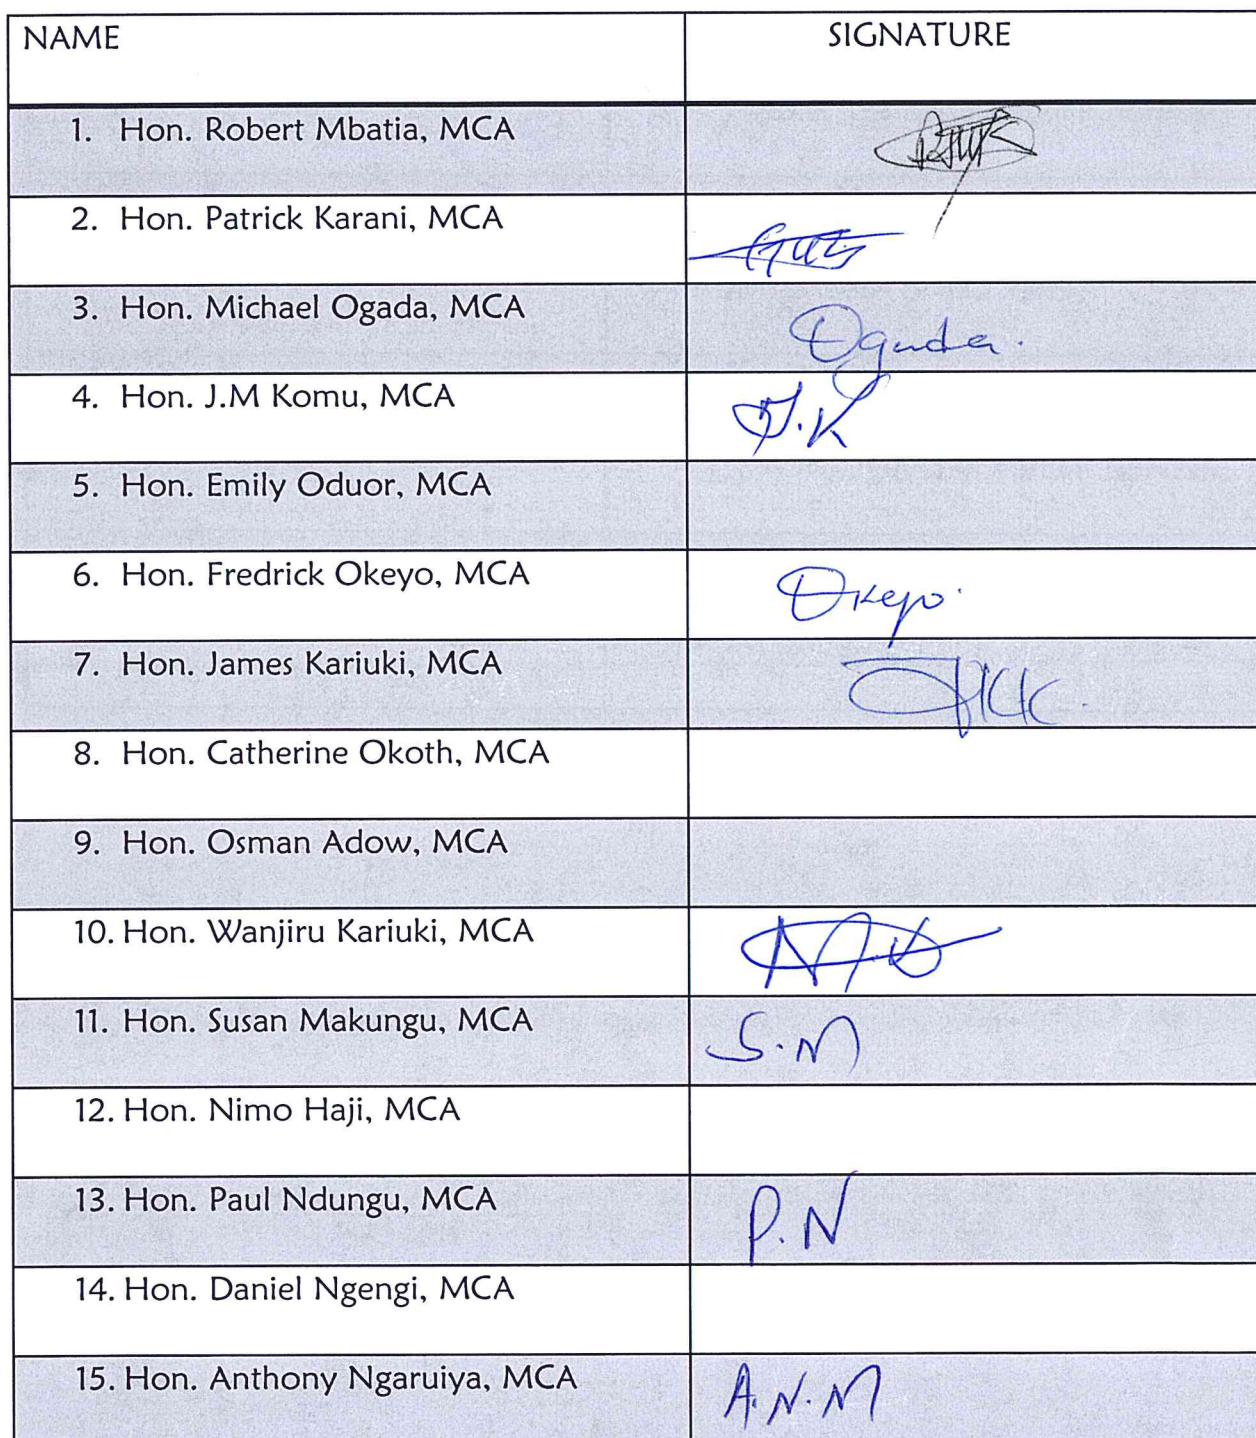 NAME SIGNATURE
1. Hon. Robert Mbatia, MCA
2. Hon. Patrick Karani, MCA
3. Hon. Michael Ogada, MCA Ogada.
4. Hon. J.M Komu, MCA J.K
5. Hon. Emily Oduor, MCA
6. Hon. Fredrick Okeyo, MCA Okeyo.
7. Hon. James Kariuki, MCA
8. Hon. Catherine Okoth, MCA
9. Hon. Osman Adow, MCA
10. Hon. Wanjiru Kariuki, MCA
11. Hon. Susan Makungu, MCA S.M
12. Hon. Nimo Haji, MCA
13. Hon. Paul Ndungu, MCA P.N
14. Hon. Daniel Ngengi, MCA
15. Hon. Anthony Ngaruiya, MCA A.N.M